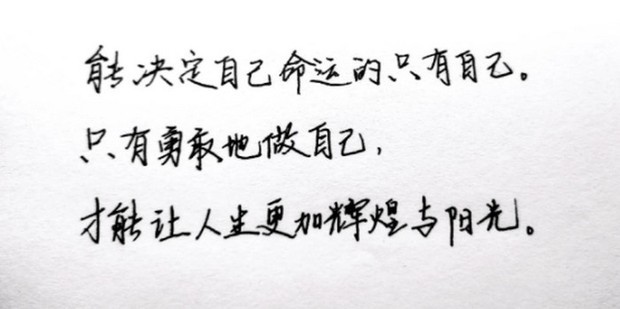 能决定自己命运的只有自己。
只有勇敢地做自己,
才能让人生更加辉煌与阳光。